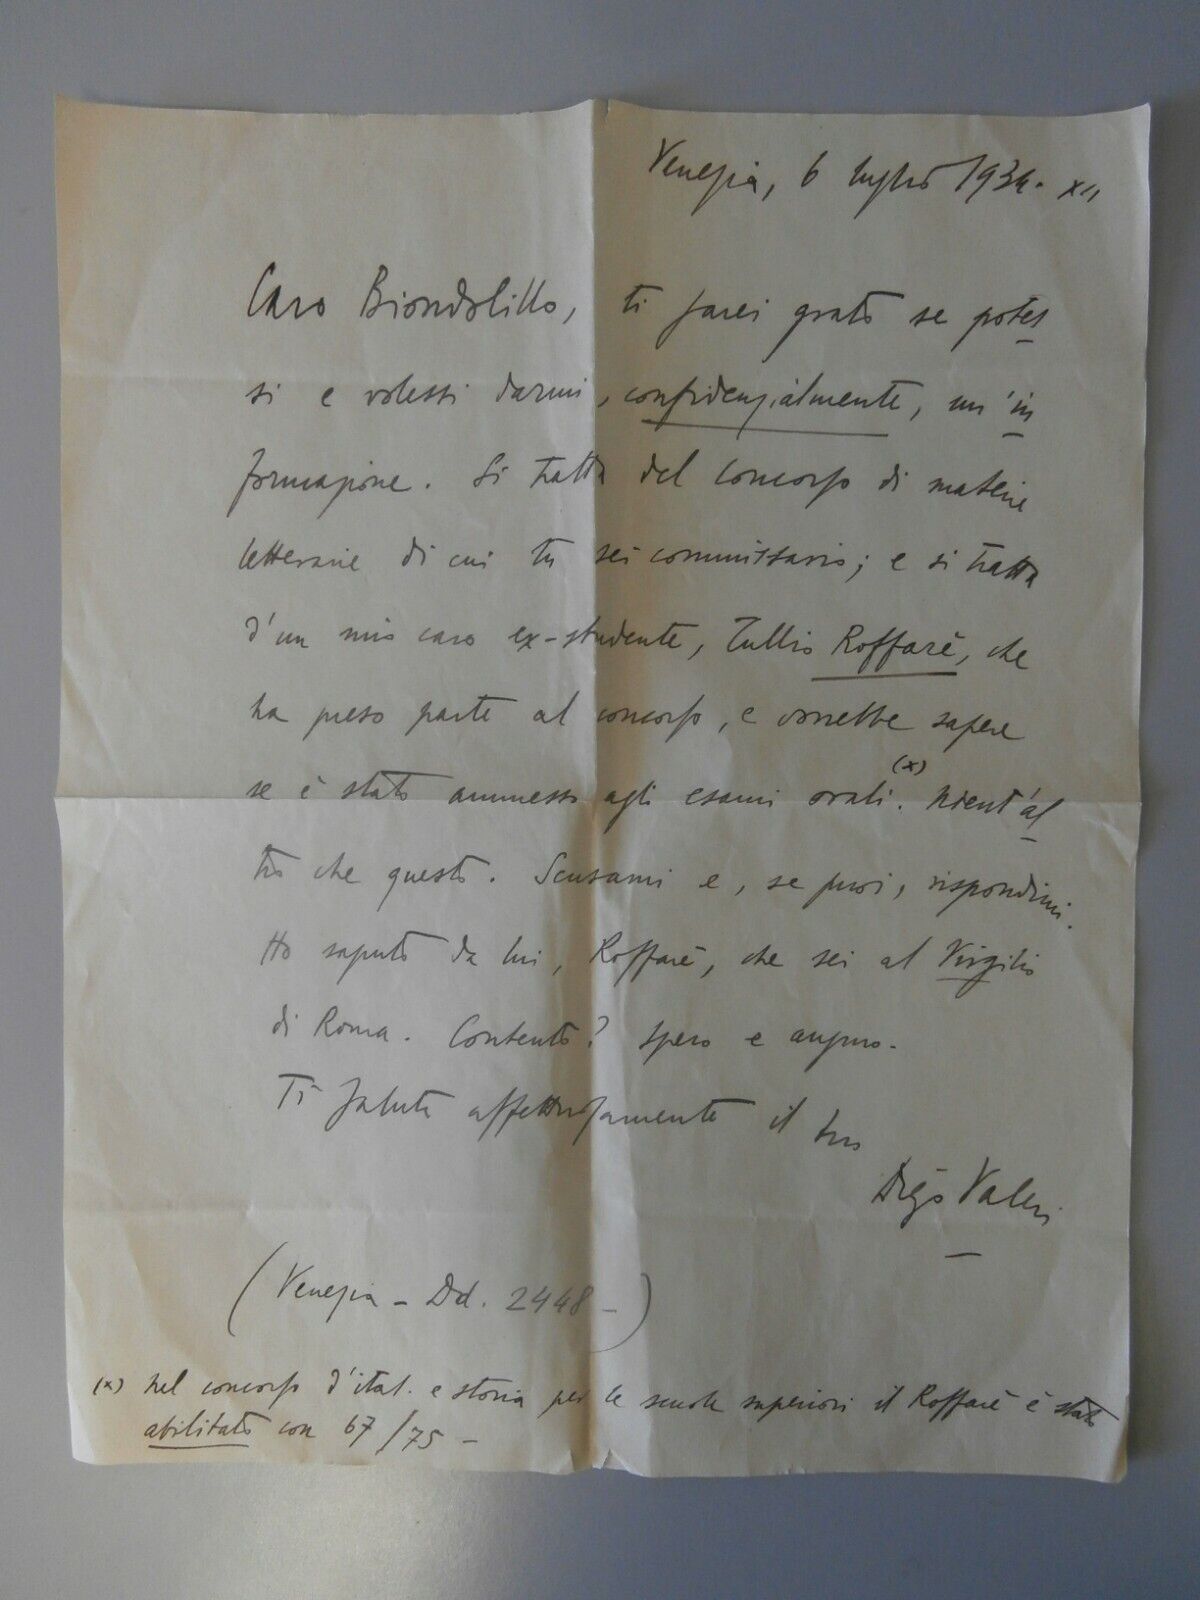 Venezia, 6 luglio 1934. XII
Caro Biondolillo, ti sarei grato se potes
si e volessi darmi, confidenzialmente, un'in
formazione. Si tratta del concorso di materie
letterarie di cui tu sei commissario; e si tratta
d'un mio caro ex-studente, Tullio Roffarè, che
ha preso parte al concorso, e vorrebbe sapere
se è stato ammesso agli esami orali.(x) Nient'al
tro che questo. Scusami e, se puoi, rispondimi.
Ho saputo da lui, Roffarè, che sei al Virgilio
di Roma. Contento? Spero e auguro.
Ti saluta affettuosamente il tuo
Diego Valeri
(Venezia - Dd. 2448 -)
(x) Nel concorso d'ital. e storia per le scuole superiori il Roffarè è stato
abilitato con 67/75 -